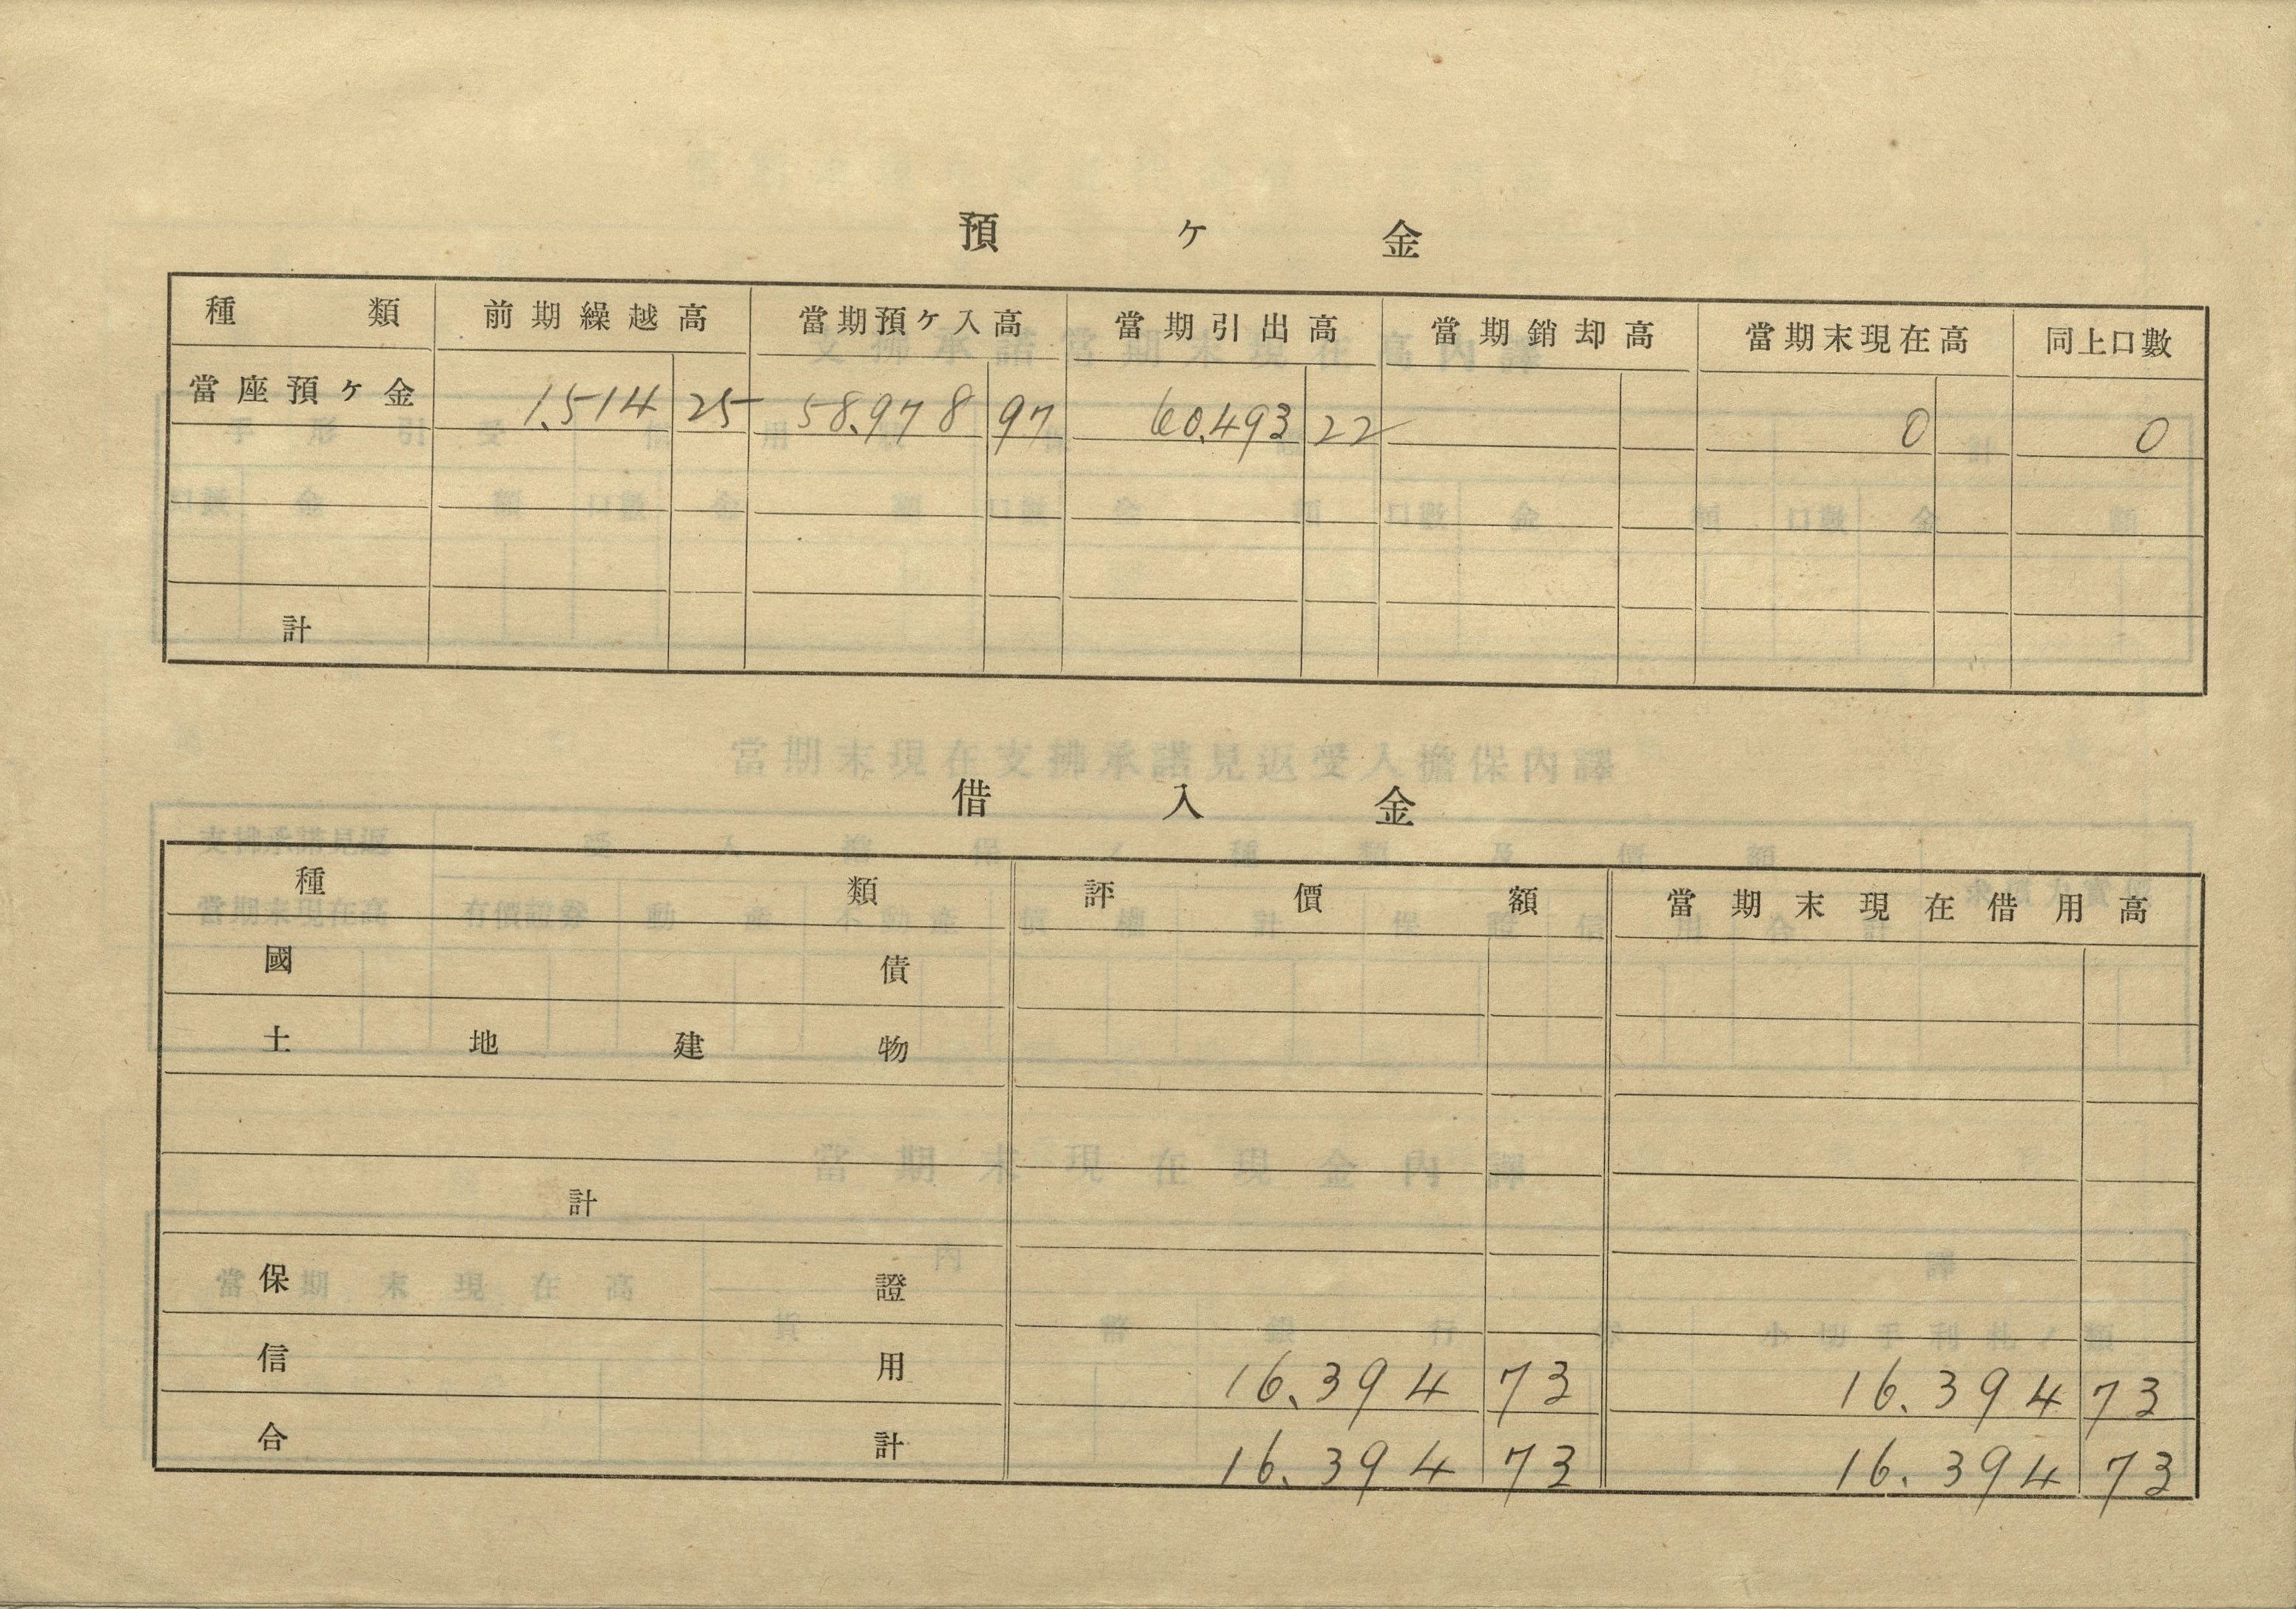 預ヶ金
種類 前期繰越高 當期預ヶ入高 當期引出高 當期銷却高 當期末現在高 同上口數
當座預ヶ金 1.514 25 58.978 97 60.493 22 0 0
計
借入金
種類 評價額 當期末現在借用高
國債
土地建物
計
保證
信用 16.394 73 16.394 73
合計 16.394 73 16.394 73